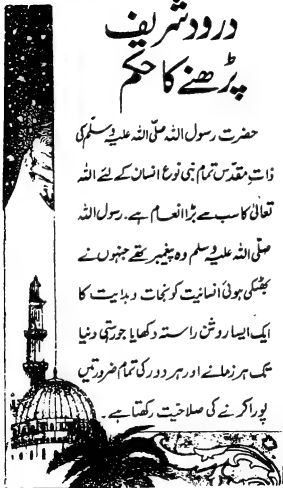 درود شریف
پڑھنے کا حکم
حضرت رسول اللہ صلّی اللہ علیہ وسلّم کی
ذات مقدّس تمام بنی نوع انسان کے لئے اللہ
تعالیٰ کا سب سے بڑا انعام ہے۔ رسول اللہ
صلّی اللہ علیہ وسلم وہ پیغمبر تھے جنہوں نے
بھٹکی ہوئی انسانیت کو نجات و ہدایت کا
ایک ایسا روشن راستہ دکھایا جو رہتی دنیا
تک ہر زمانے اور ہر دور کی تمام ضرورتیں
پورا کرنے کی صلاحیت رکھتا ہے۔